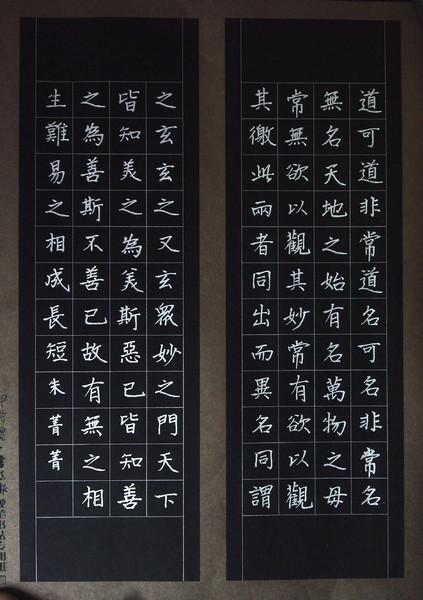 道可道非常道名可名非常名
無名天地之始有名萬物之母
常無欲以觀其妙常有欲以觀
其徼此兩者同出而異名同謂
之玄玄之又玄眾妙之門天下
皆知美之為美斯惡已皆知善
之為善斯不善已故有無之相
生難易之相成長短朱菁菁